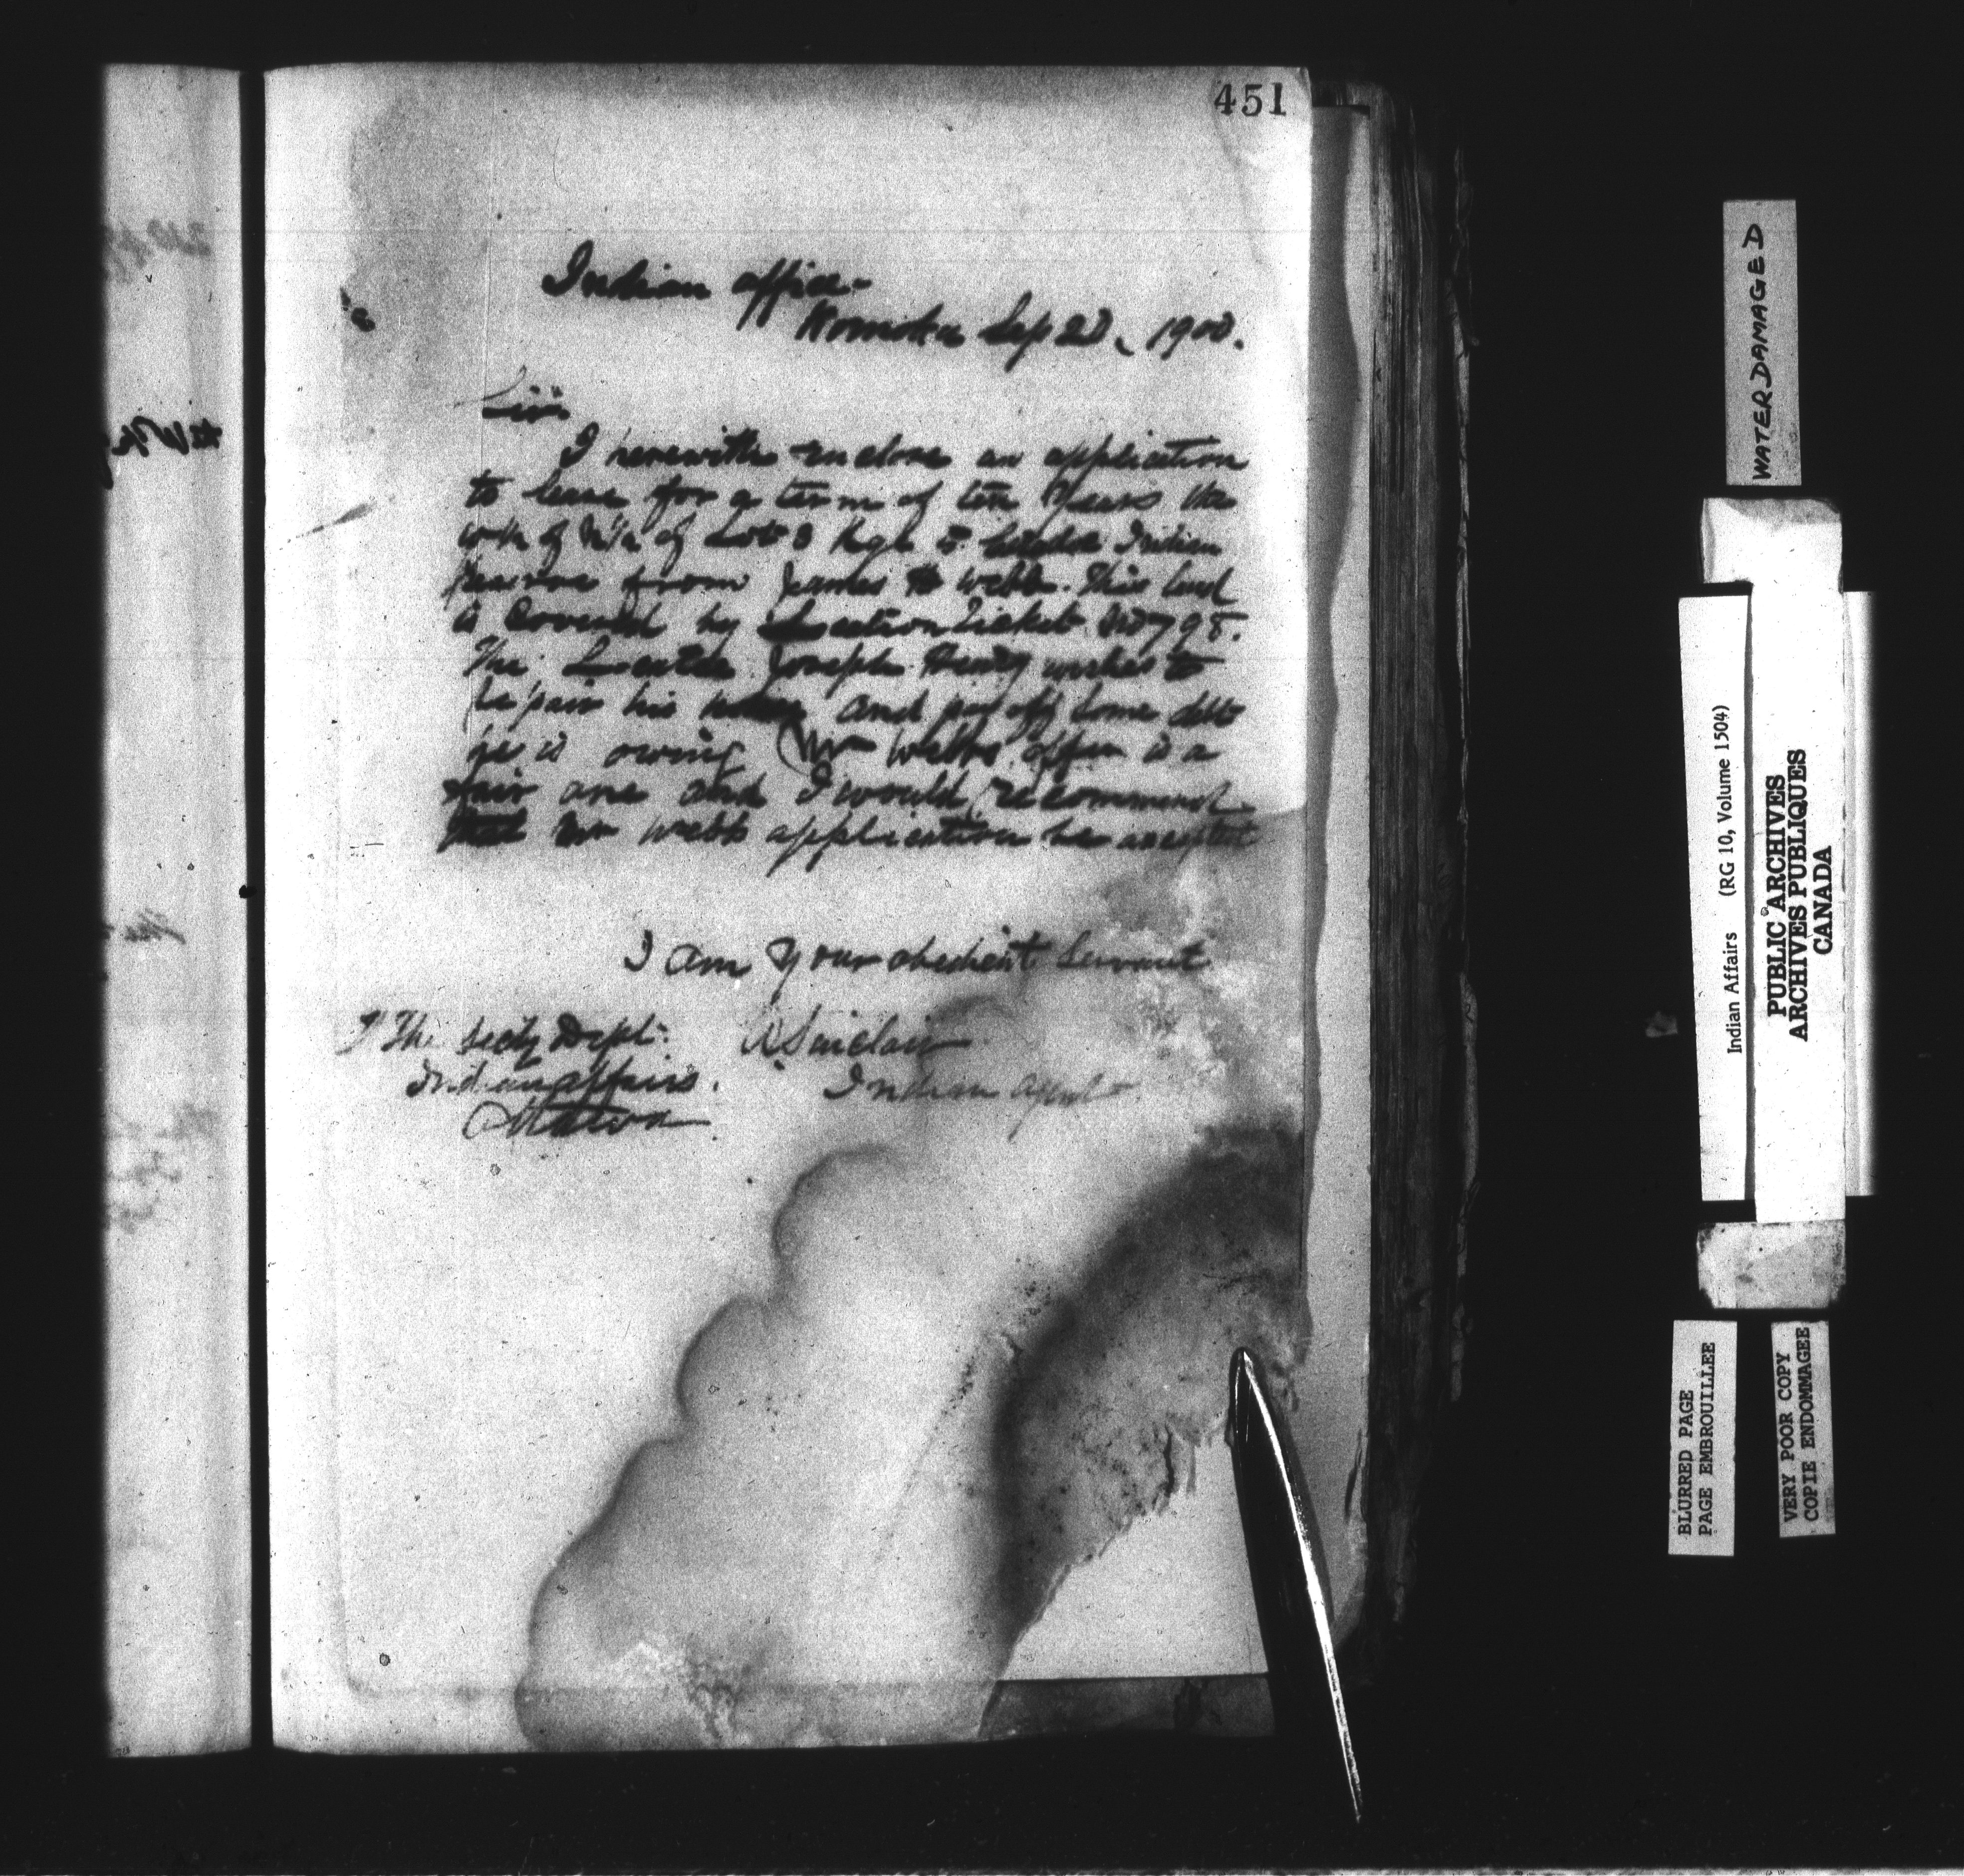 451
Indian office
Komoka Sep 20, 1900.
Sir
I herewith enclose an application
to lease for a term of ten years the
of N½ of Lot 3 Rge Indian
Reserve from James Webb. This land
is Covered by Location Ticket No 798.
The Locatee Joseph Henry wishes to
repair his and pay off some debts
he is owing Mr Webbs offer is a
fair one and I would recommend
that Mr Webbs application be accepted
I am your obedient Servant
The Secty Dept. A Sinclair
Indian affairs. Indian agent
Ottawa
WATER DAMAGED
Indian Affairs (RG 10, Volume 1504)
PUBLIC ARCHIVES
ARCHIVES PUBLIQUES
CANADA
BLURRED PAGE
PAGE EMBROUILLEE
VERY POOR COPY
COPIE ENDOMMAGEE